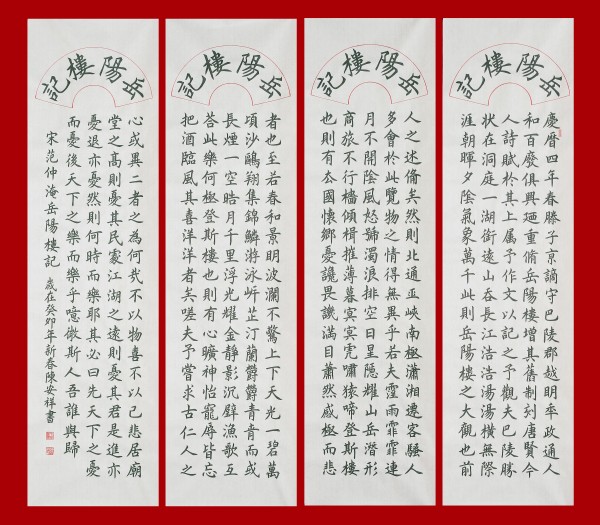 岳陽樓記
慶曆四年春滕子京謫守巴陵郡越明年政通人
和百廢俱興迺重脩岳陽樓增其舊制刻唐賢今
人詩賦於其上属予作文以記之予觀夫巴陵勝
状在洞庭一湖銜遠山吞長江浩浩湯湯橫無際
涯朝暉夕陰氣象萬千此則岳陽樓之大觀也前
岳陽樓記
人之述備矣然則北通巫峽南極瀟湘遷客騷人
多會於此覽物之情得無異乎若夫霪雨霏霏連
月不開陰風怒號濁浪排空日星隱耀山岳潛形
商旅不行檣傾楫摧薄暮冥冥虎嘯猿啼登斯樓
也則有去國懷鄉憂讒畏譏滿目蕭然感極而悲
岳陽樓記
者也至若春和景明波瀾不驚上下天光一碧萬
頃沙鷗翔集錦鱗游泳岍芷汀蘭鬱鬱青青而或
長煙一空皓月千里浮光耀金靜影沉璧漁歌互
荅此樂何極登斯樓也則有心曠神怡寵辱皆忘
把酒臨風其喜洋洋者矣嗟夫予嘗求古仁人之
岳陽樓記
心或異二者之為何哉不以物喜不以己悲居廟
堂之高則憂其民處江湖之遠則憂其君是進亦
憂退亦憂然則何時而樂耶其必曰先天下之憂
而憂後天下之樂而樂乎噫微斯人吾誰與歸
宋范仲淹岳陽樓記 歲在癸卯年新春陳安祥書